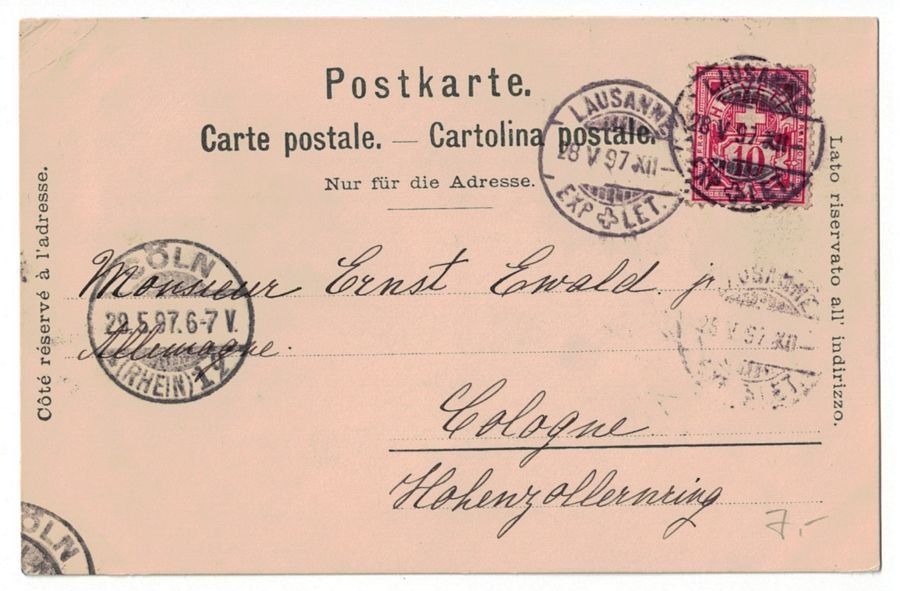 Postkarte.
Carte postale. — Cartolina postale.
Nur für die Adresse.
Côté réservé à l'adresse.
Lato riservato all' indirizzo.
LAUSANNE
28 V 97 XII—
EXP LET.
LAUSANNE
28 V 97 XII
10
EXP LET.
Monsieur Ernst Ewald jr
Allemagne.
Cologne
Hohenzollernring
CÖLN
29.5.97.6-7 V.
(RHEIN) 12
LAUSANNE
V 97 XII—
EXP LET.
CÖLN
7.-